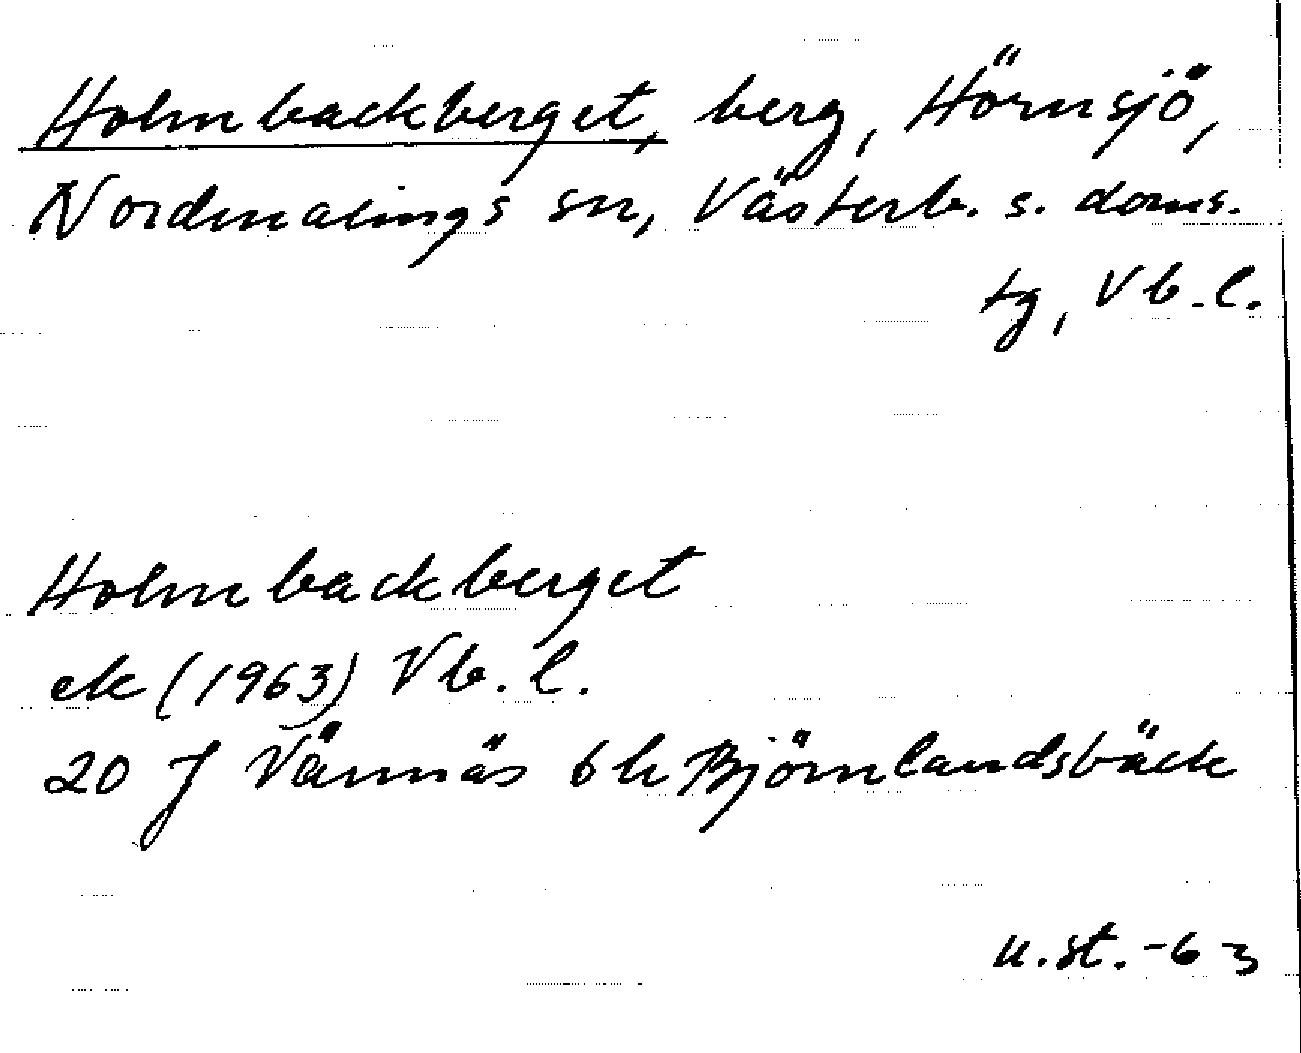 Holmbackberget, berg, Hörnsjö,
Nordmalings sn, Västerb. s. doms.
tg, Vb. l.
Holmbackberget
ek (1963) Vb. l.
20 J Vännäs 6 h Björnlandsbäck
u. st. -63